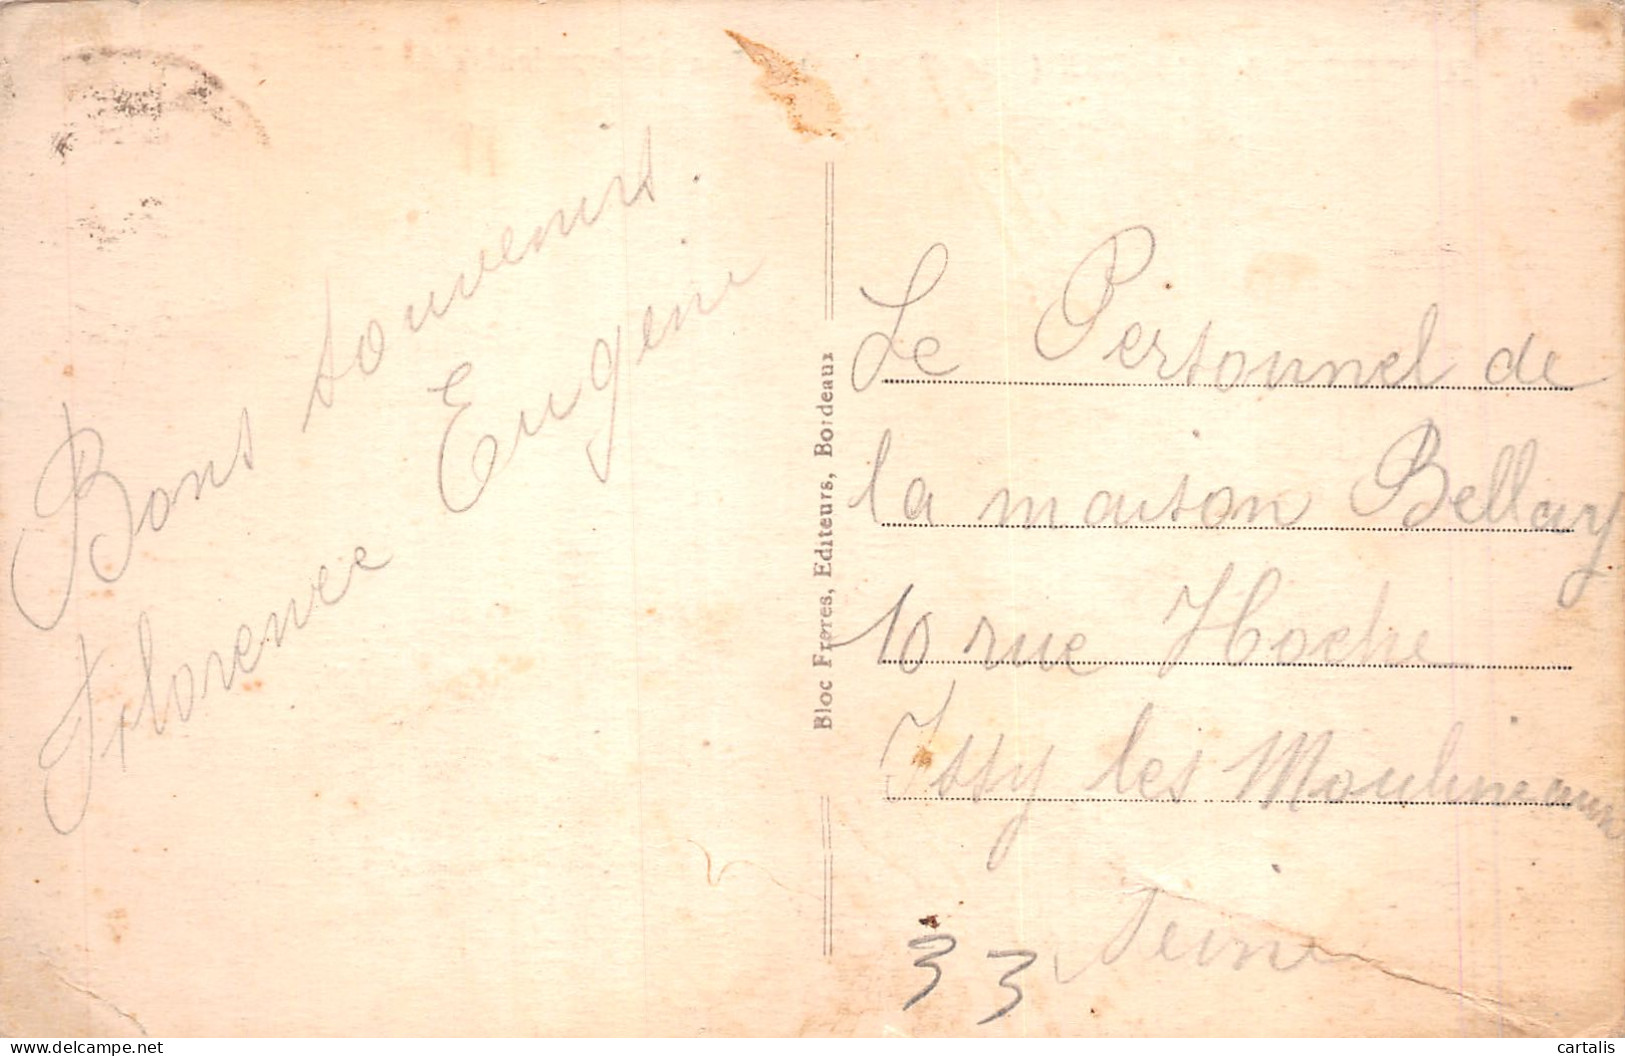 Bons souvenirs.
Florence Eugénie
Bloc Frères, Editeurs, Bordeaux
Le Personnel de
la maison Bellay
10 rue Hoche
Issy les Moulineaux
Seine
33
delcampe.net
cartalis